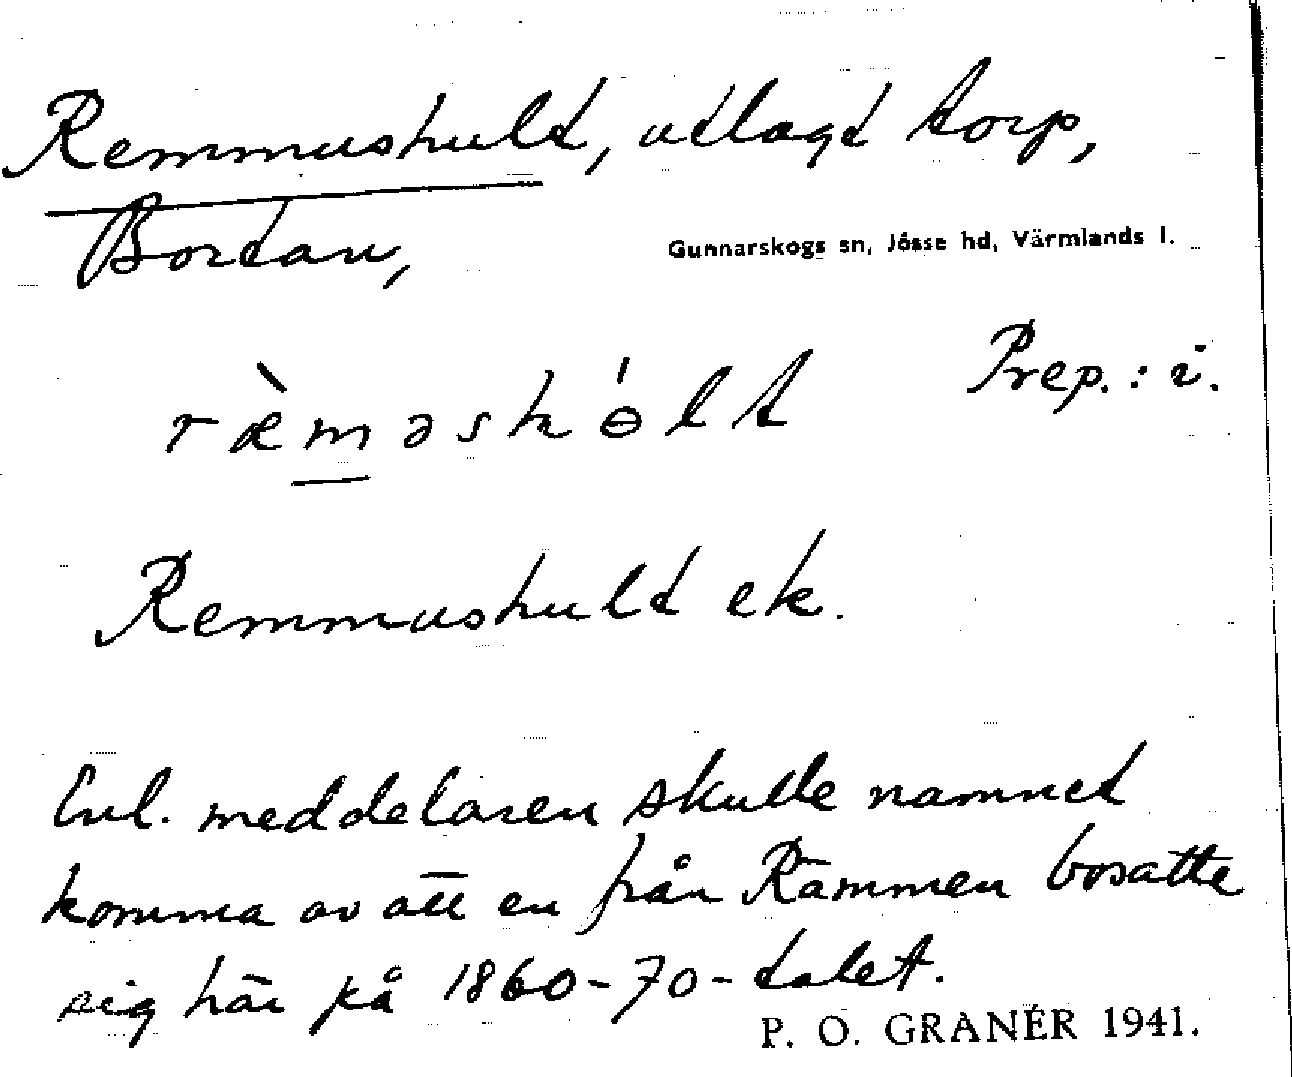 Remmushult, utlagt torp,
Bortan,
Gunnarskogs sn, Jösse hd, Värmlands l.
Prep.: i.
ræ̀məskɵ́lt
Remmushult ek.
Enl. meddelaren skulle namnet
komma av att en från Rämmen bosatte
sig här på 1860-70-talet.
P. O. GRANÉR 1941.